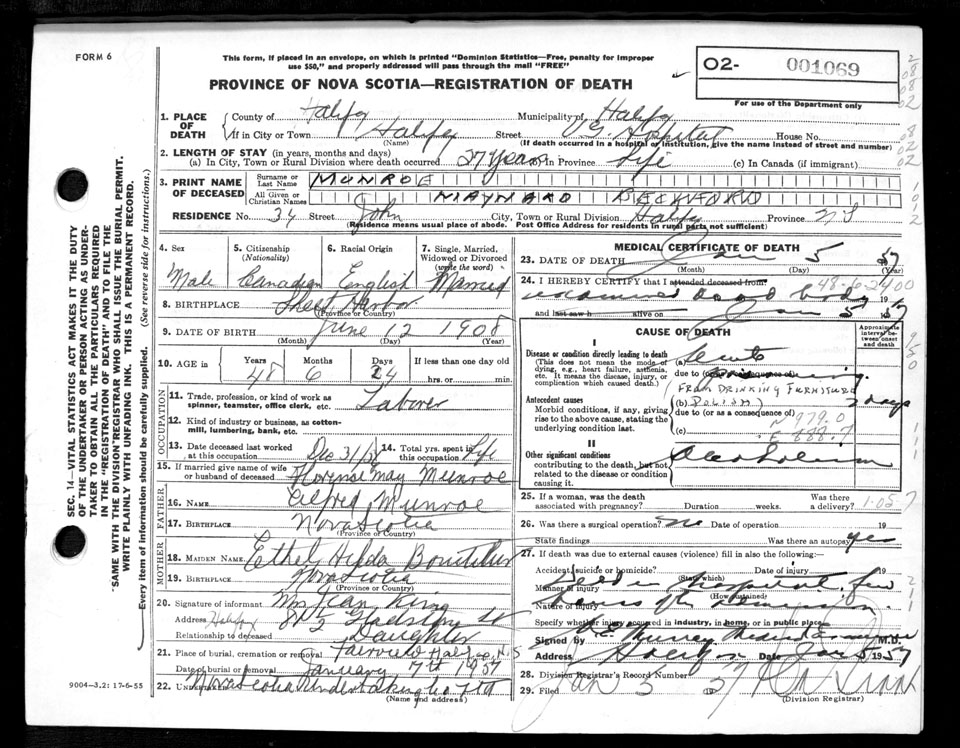 FORM 6
This form, if placed in an envelope, on which is printed "Dominion Statistics—Free, penalty for improper
use $50," and properly addressed will pass through the mail "FREE"
PROVINCE OF NOVA SCOTIA—REGISTRATION OF DEATH
O2- 001069
For use of the Department only
1. PLACE OF DEATH
County of Halifax Municipality of Halifax
If in City or Town Halifax Street V.G. Hospital House No.
(Name) (If death occurred in a hospital or institution, give the name instead of street and number)
2. LENGTH OF STAY (in years, months and days)
(a) In City, Town or Rural Division where death occurred 27 years In Province Life (c) In Canada (if immigrant)
3. PRINT NAME OF DECEASED
Surname or Last Name MUNROE
All Given or Christian Names MAYNARD BECKFORD
RESIDENCE No. 34 Street John City, Town or Rural Division Halifax Province N S
(Residence means usual place of abode. Post Office Address for residents in rural parts not sufficient)
4. Sex Male
5. Citizenship (Nationality) Canadian
6. Racial Origin English
7. Single, Married, Widowed or Divorced (write the word) Married
8. BIRTHPLACE Sheet Harbor
(Province or Country)
9. DATE OF BIRTH June 12 1908
(Month) (Day) (Year)
10. AGE in Years 48 Months 6 Days 24 If less than one day old
hrs. or min.
OCCUPATION
11. Trade, profession, or kind of work as
spinner, teamster, office clerk, etc. Laborer
12. Kind of industry or business, as cotton-
mill, lumbering, bank, etc.
13. Date deceased last worked at this occupation Dec 31/56
14. Total yrs. spent in this occupation Life
15. If married give name of wife
or husband of deceased Florence May Munroe
FATHER
16. NAME Alfred Munroe
17. BIRTHPLACE Nova Scotia
(Province or Country)
MOTHER
18. MAIDEN NAME Ethel Hilda Boutilier
19. BIRTHPLACE Nova Scotia
(Province or Country)
20. Signature of informant Mrs Jean King
Address Halifax Gladstone St
Relationship to deceased Daughter
21. Place of burial, cremation or removal Fairview N.S
Date of burial or removal January 7th 1957
22. UNDERTAKER Nova Scotia Undertaking Co Ltd
(Name and address)
9004—3.2: 17-6-55
SEC. 14—VITAL STATISTICS ACT MAKES IT THE DUTY
OF THE UNDERTAKER OR PERSON ACTING AS UNDER-
TAKER TO OBTAIN ALL THE PARTICULARS REQUIRED
IN THE "REGISTRATION OF DEATH" AND TO FILE THE
"SAME WITH THE DIVISION REGISTRAR WHO SHALL ISSUE THE BURIAL PERMIT.
WRITE PLAINLY WITH UNFADING INK. THIS IS A PERMANENT RECORD.
Every item of information should be carefully supplied. (See reverse side for instructions.)
MEDICAL CERTIFICATE OF DEATH
23. DATE OF DEATH Jan 5 57
(Month) (Day) (Year)
24. I HEREBY CERTIFY that I attended deceased from: 48-6-2400
examined dead body 19
and last saw h alive on Jan 5 1957
CAUSE OF DEATH
Approximate interval between onset and death
I
Disease or condition directly leading to death
(This does not mean the mode of
dying, e.g., heart failure, asthenia,
etc. It means the disease, injury, or
complication which caused death.)
(a) Acute
due to (or as a consequence of)
poisoning
FROM DRINKING FURNITURE
Antecedent causes
Morbid conditions, if any, giving
rise to the above cause, stating the
underlying condition last.
(b) POLISH) days
due to (or as a consequence of)
N979.0
(c) E888.7
II
Other significant conditions
contributing to the death, but not
related to the disease or condition
causing it.
Alcoholism
25. If a woman, was the death
associated with pregnancy? Duration weeks. Was there a delivery? 1-05-7
26. Was there surgical operation? no Date of operation 19
State findings Was there an autopsy? yes
27. If death was due to external causes (violence) fill in also the following:—
Accident, suicide or homicide? Date of injury 19
(State which)
Manner of injury Died in hospital few
(How sustained)
Nature of injury hours after admission.
Specify whether injury occurred in industry, in home, or in public place
Signed by Murray Medical Examiner M.D.
Address Halifax Date Jan 5 1957
28. Division Registrar's Record Number
29. Filed Jan 5 1957
(Division Registrar)